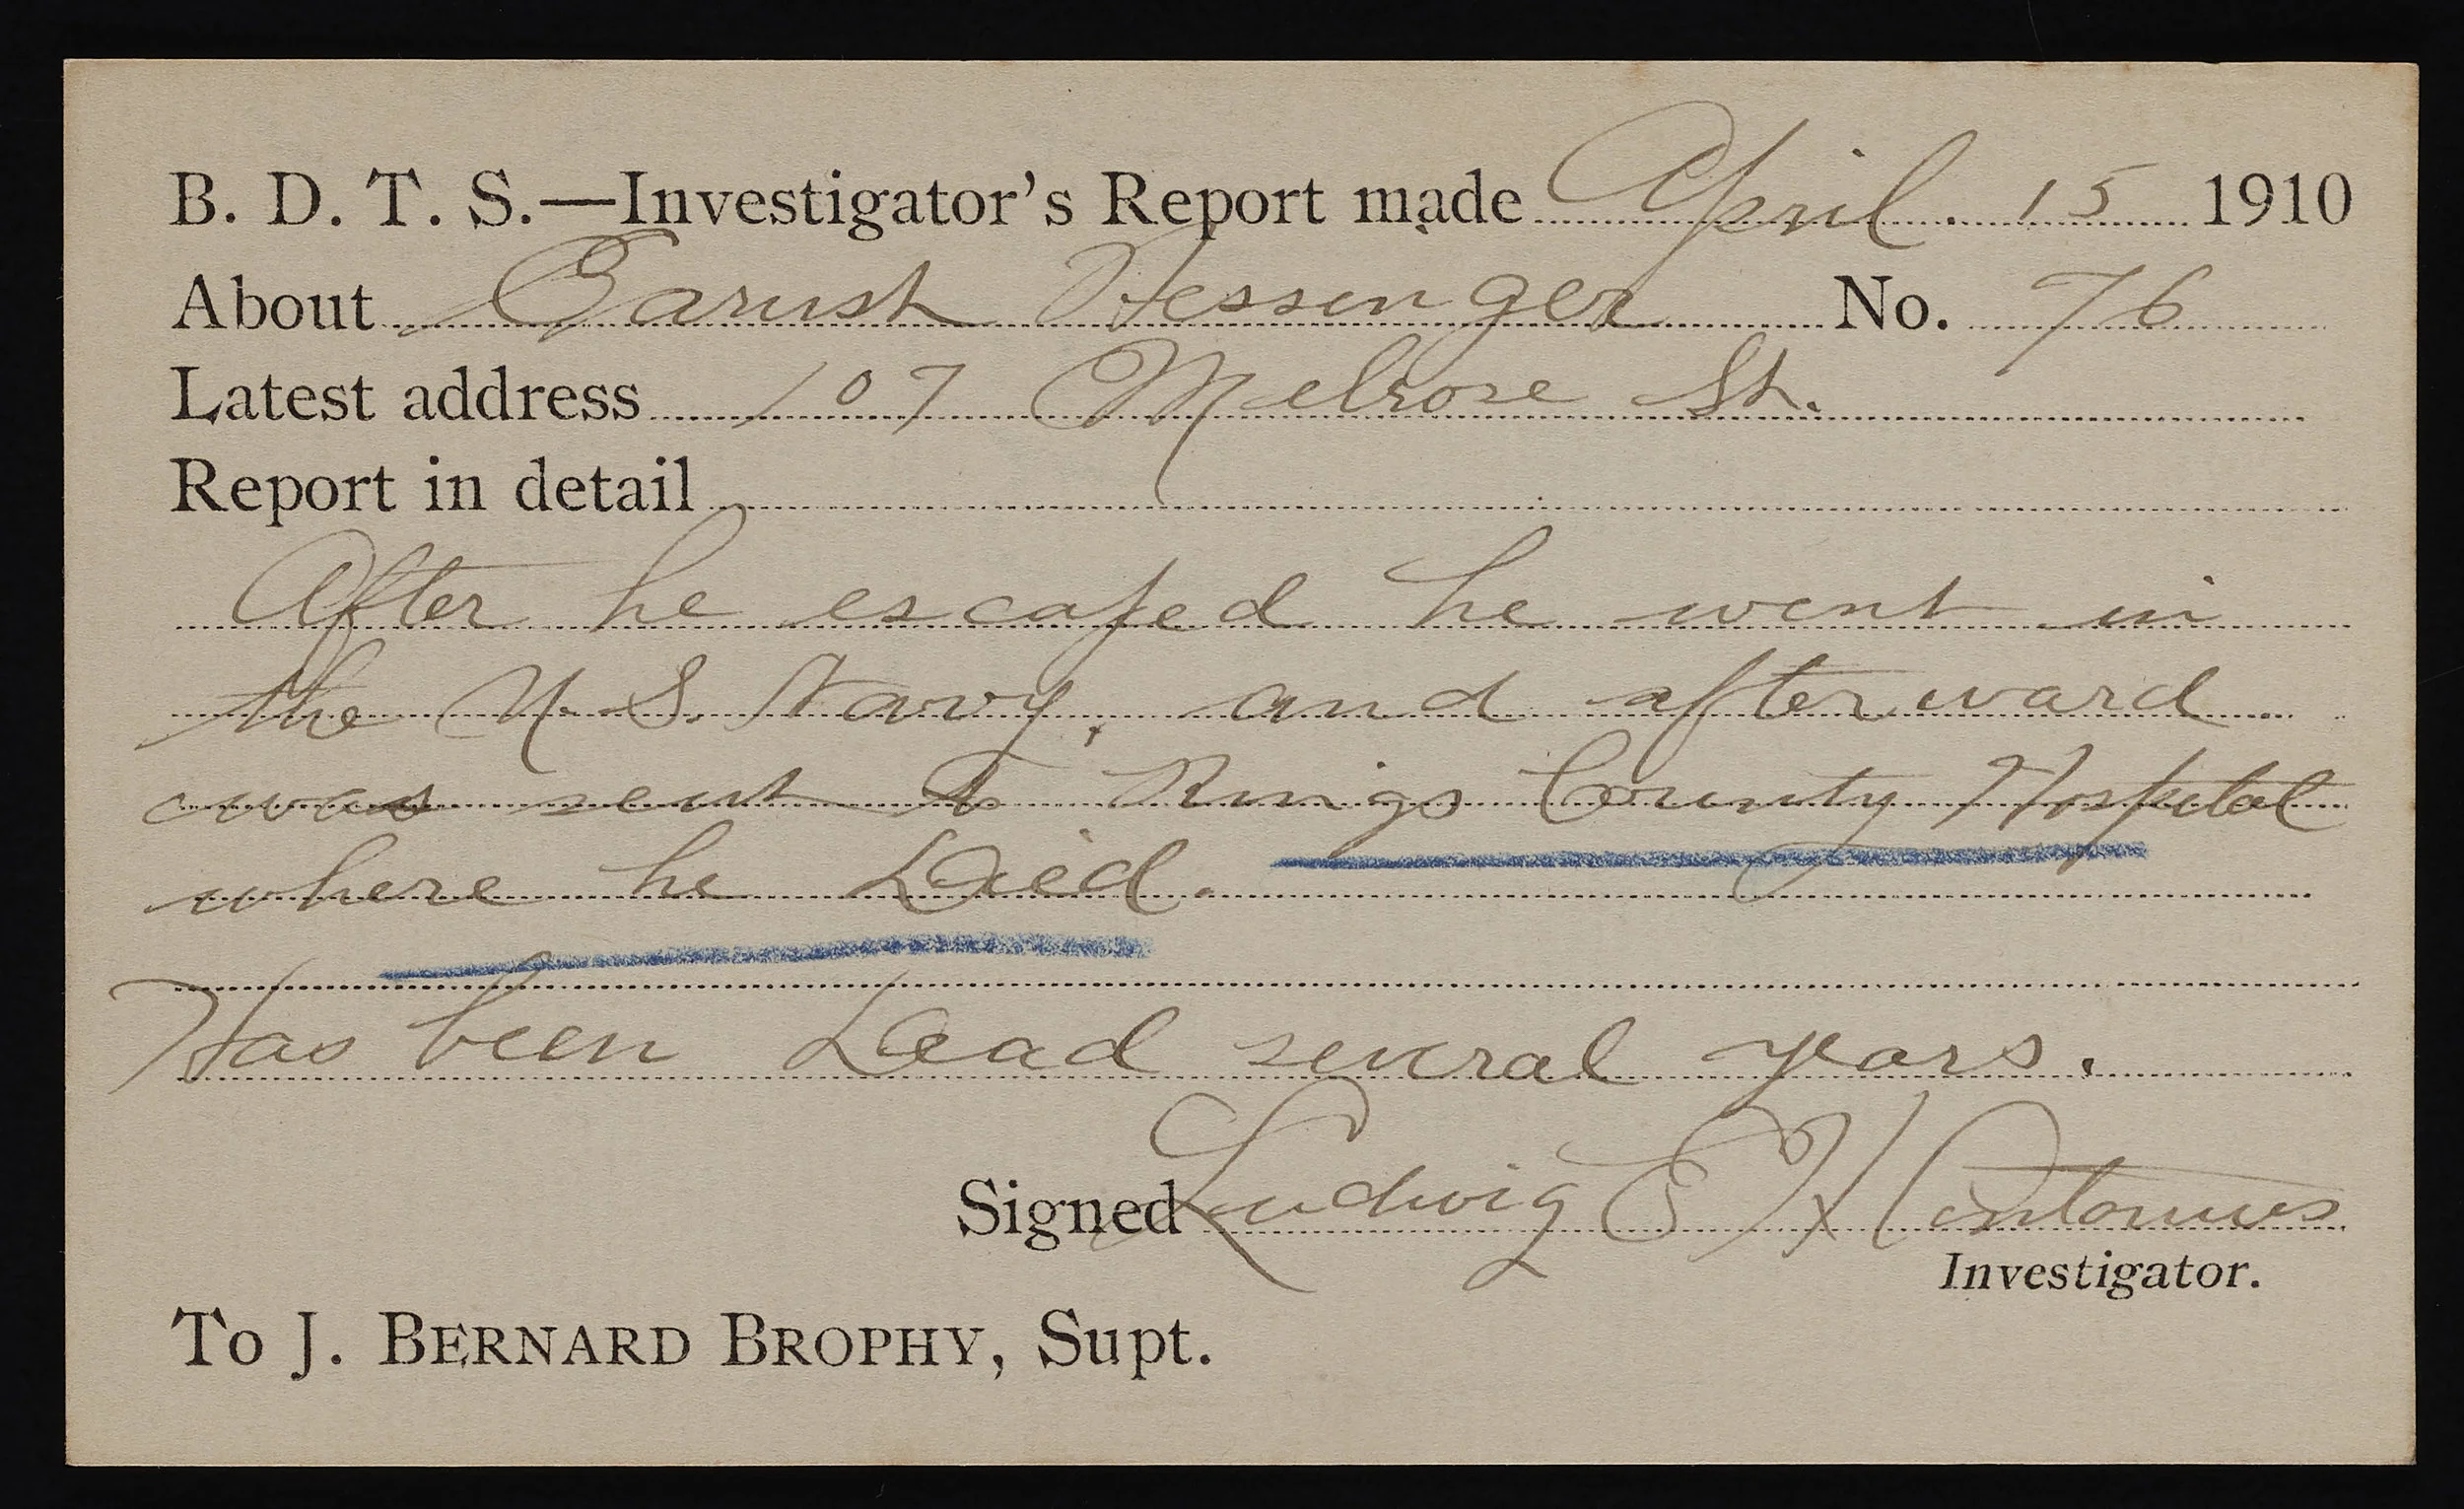 B. D. T. S.—Investigator's Report made April. 15 1910
About Barush Hessinger No. 76
Latest address 107 Melrose St.
Report in detail
After he escaped he went in
the U. S. Navy, and afterward
was sent to Kings County Hospital
where he Died.
Has been Dead several years.
Signed Ludwig E H Contonius
Investigator.
To J. BERNARD BROPHY, Supt.